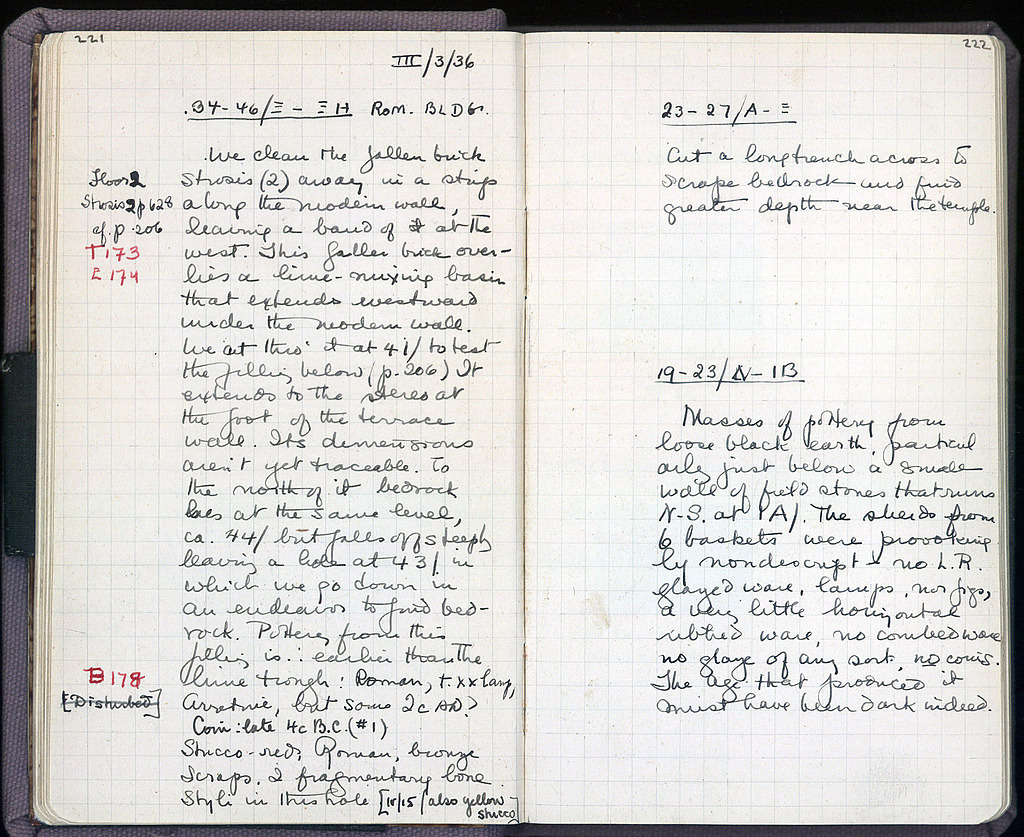 221
III/3/36
34-46/Ξ - ΞH Rom. BLDG.
We clean the fallen brick
Strosis (2) away in a strip
along the modern wall,
leaving a band of it at the
west. This fallen brick over-
lies a lime-mixing basin
that extends westward
under the modern wall.
We cut thro' it at 41/ to test
the filling below (p. 206) It
extends to the stereo at
the foot of the terrace
wall. Its dimensions
aren't yet traceable. To
the north of it bedrock
lies at the same level,
ca. 44/ but falls off steeply
leaving a hole at 43/ in
which we go down in
an endeavor to find bed-
rock. Pottery from this
filling is ∴ earlier than the
lime trough: Roman, t. XX lamp,
Arretine, but some 2c AD?
Coin: late 4c B.C. (#1)
Stucco-red, Roman, bronze
scraps. 2 fragmentary bone
Styli in this hole [also yellow
stucco]
Floor 2
Strosis 2 p 628
cf. p. 206
T 173
E 174
B 178
[Disturbed]
222
23-27/A-Ξ
Cut a long trench across to
scrape bedrock and find
greater depth near the temple.
19-23/N-IB
Masses of pottery from
loose black earth, particul
arly just below a small
wall of field stones that runs
N-S. at IA/. The sherds from
6 baskets were provoking
ly nondescript - no L.R.
glazed ware, lamps, nor figs,
a very little horizontal
ribbed ware, no combed ware
no glaze of any sort, no coins.
The age that produced it
must have been dark indeed.